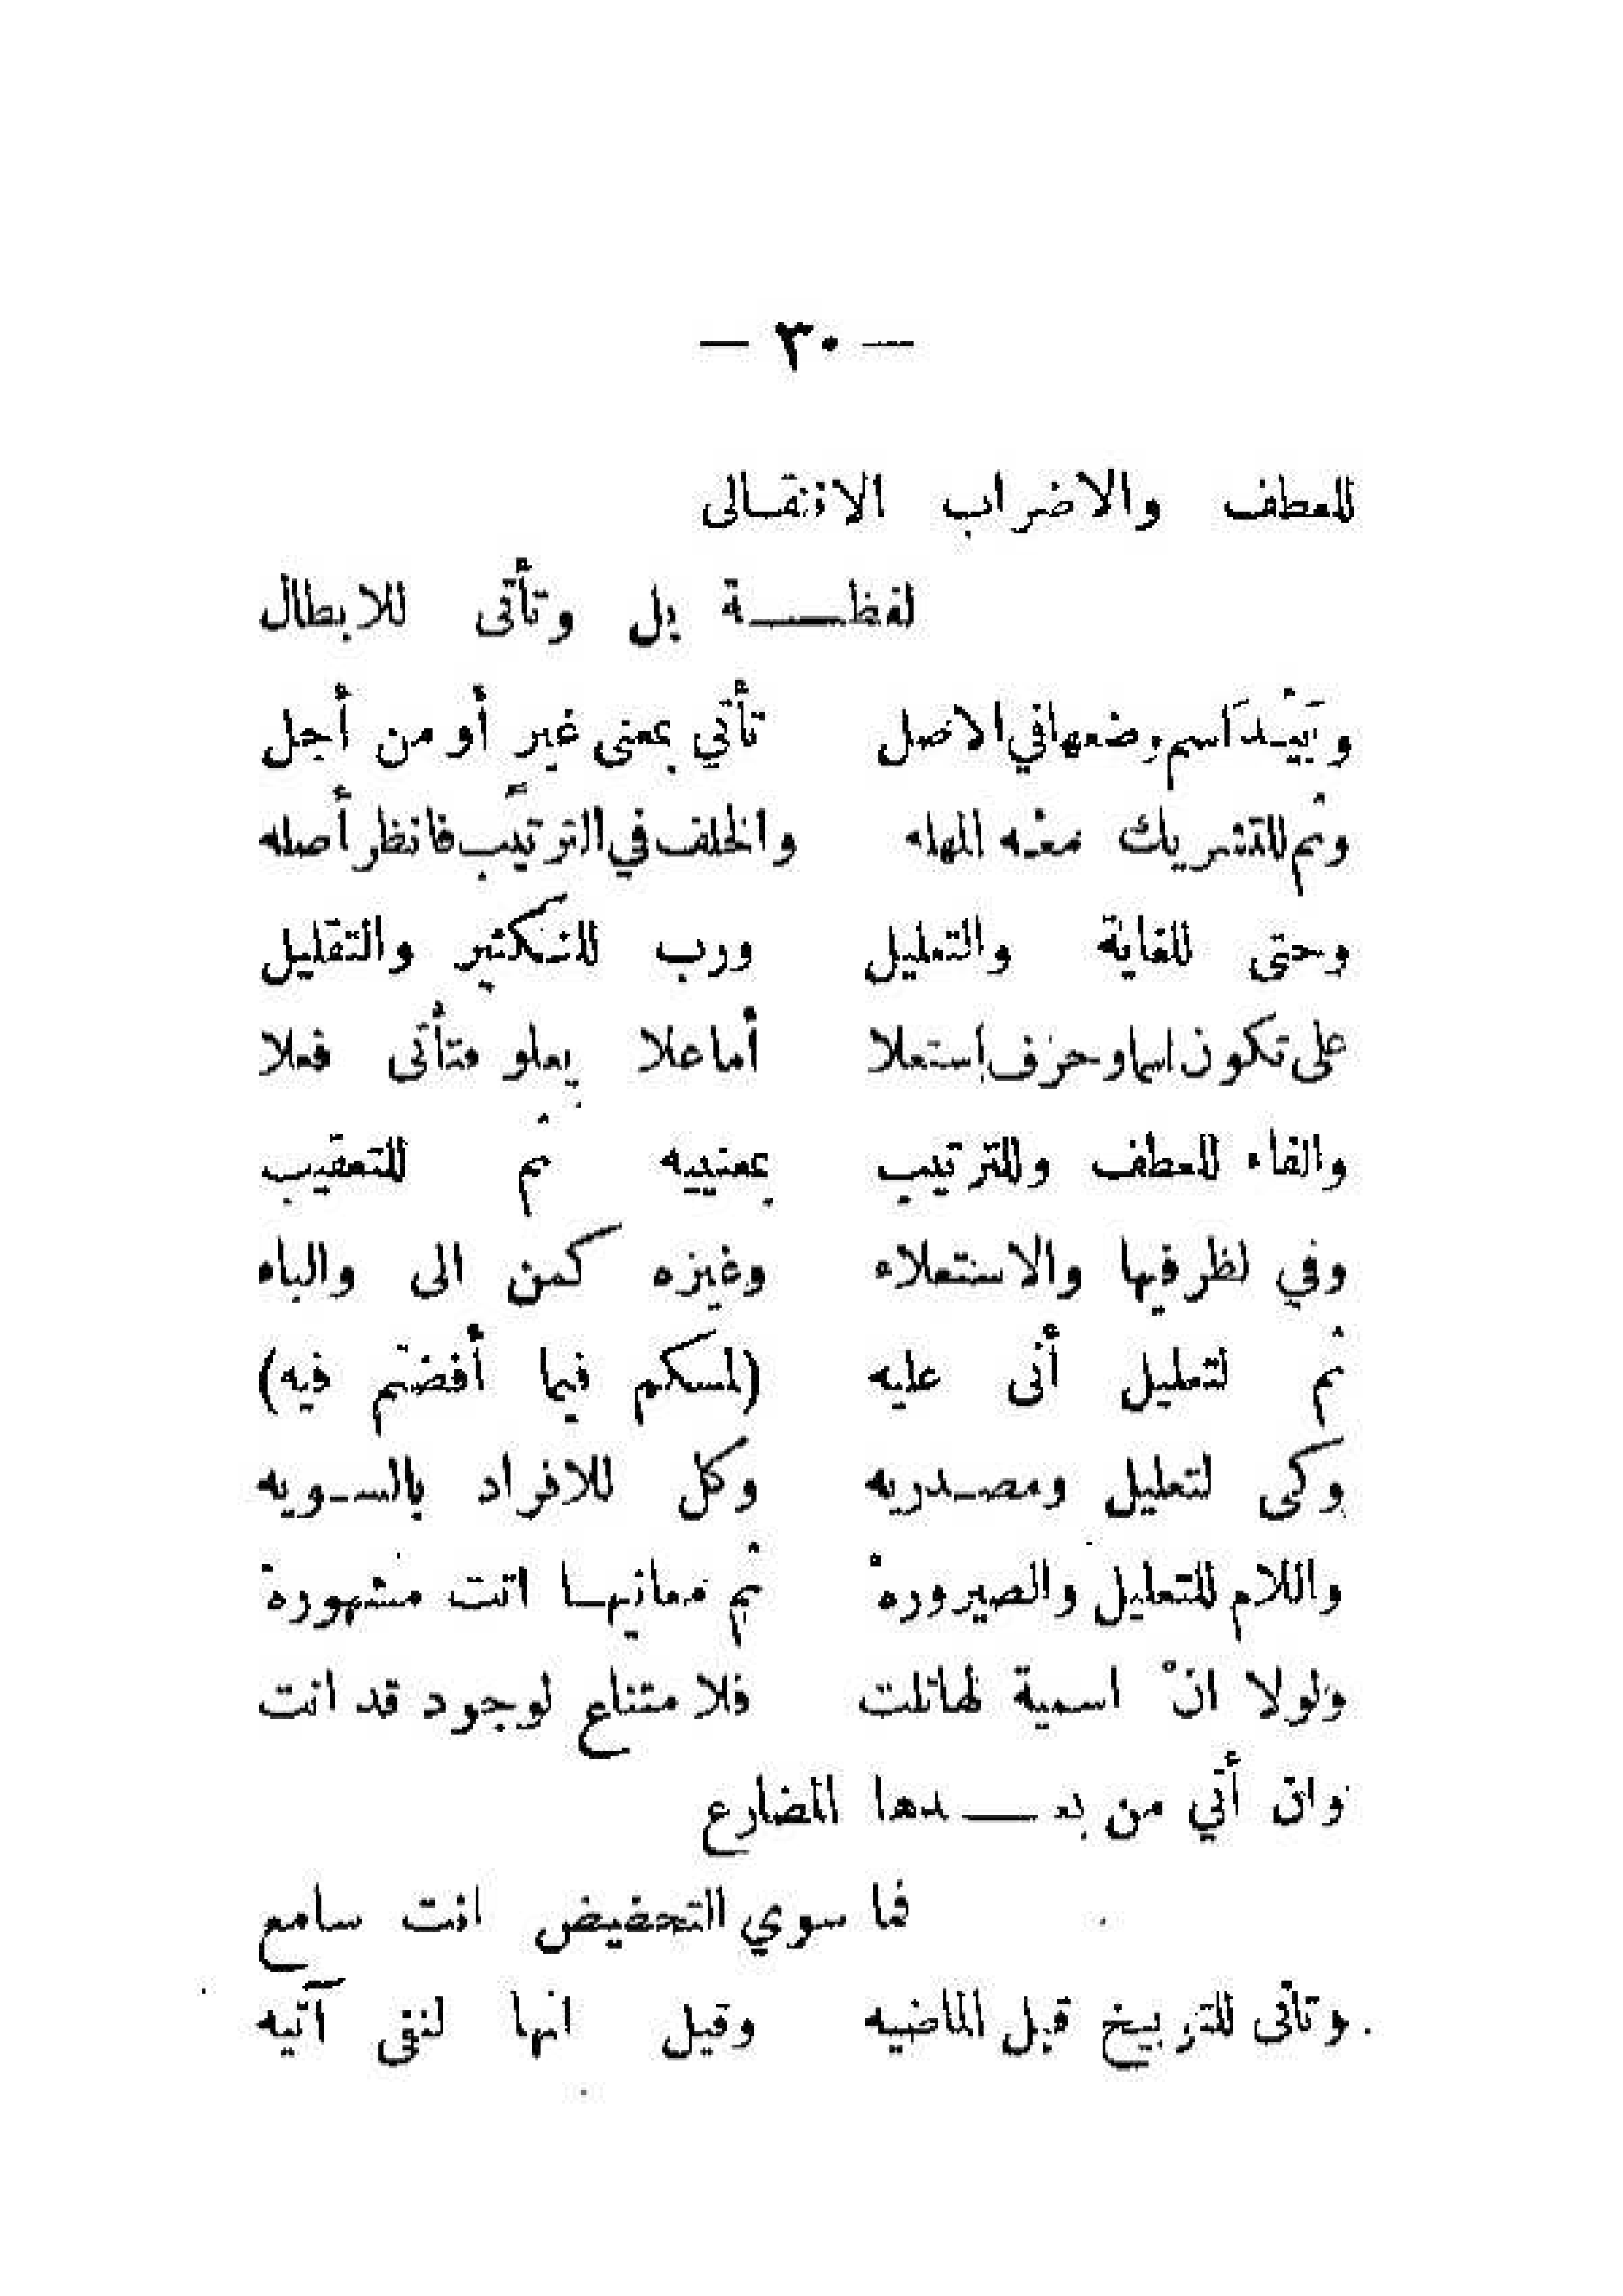 — ٣٠ —
للعطف والاضراب الانتقـالى
لفظـــة بل وتأتى للابطال
وَبَيْـدَ اسم وضعها في الاصل تأتي بمعنى غيرٍ أو من أجل
وثم للتشريك معْـه المهله والخلف في الترتيب فانظر أصله
وحتى للغاية والتعليل ورب للتـكثير والتقليل
على تكون اسما وحرف إستعلا أما علا يعلو فتأتى فعلا
والفاء للعطف وللترتيب بمعنييه ثم للتعقيب
وفي لظرفيها والاستعلاء وغيره كمن الى والباء
ثم لتعليل أتى عليه (لمسكم فيما أفضتم فيه)
وكى لتعليل ومصـدريه وكل للافراد بالسـويه
واللام للتعليل والصيرورهْ ثم معانيهـا اتت مشهورهْ
ولولا انْ اسمية لها تلت فلا متناع لوجود قد اتت
وان أتي من بعـــدها المضارع
فما سوي التحضيض انت سامع
وتأتى للتوبيخ قبل الماضيه وقيل انها لنفى آتيه